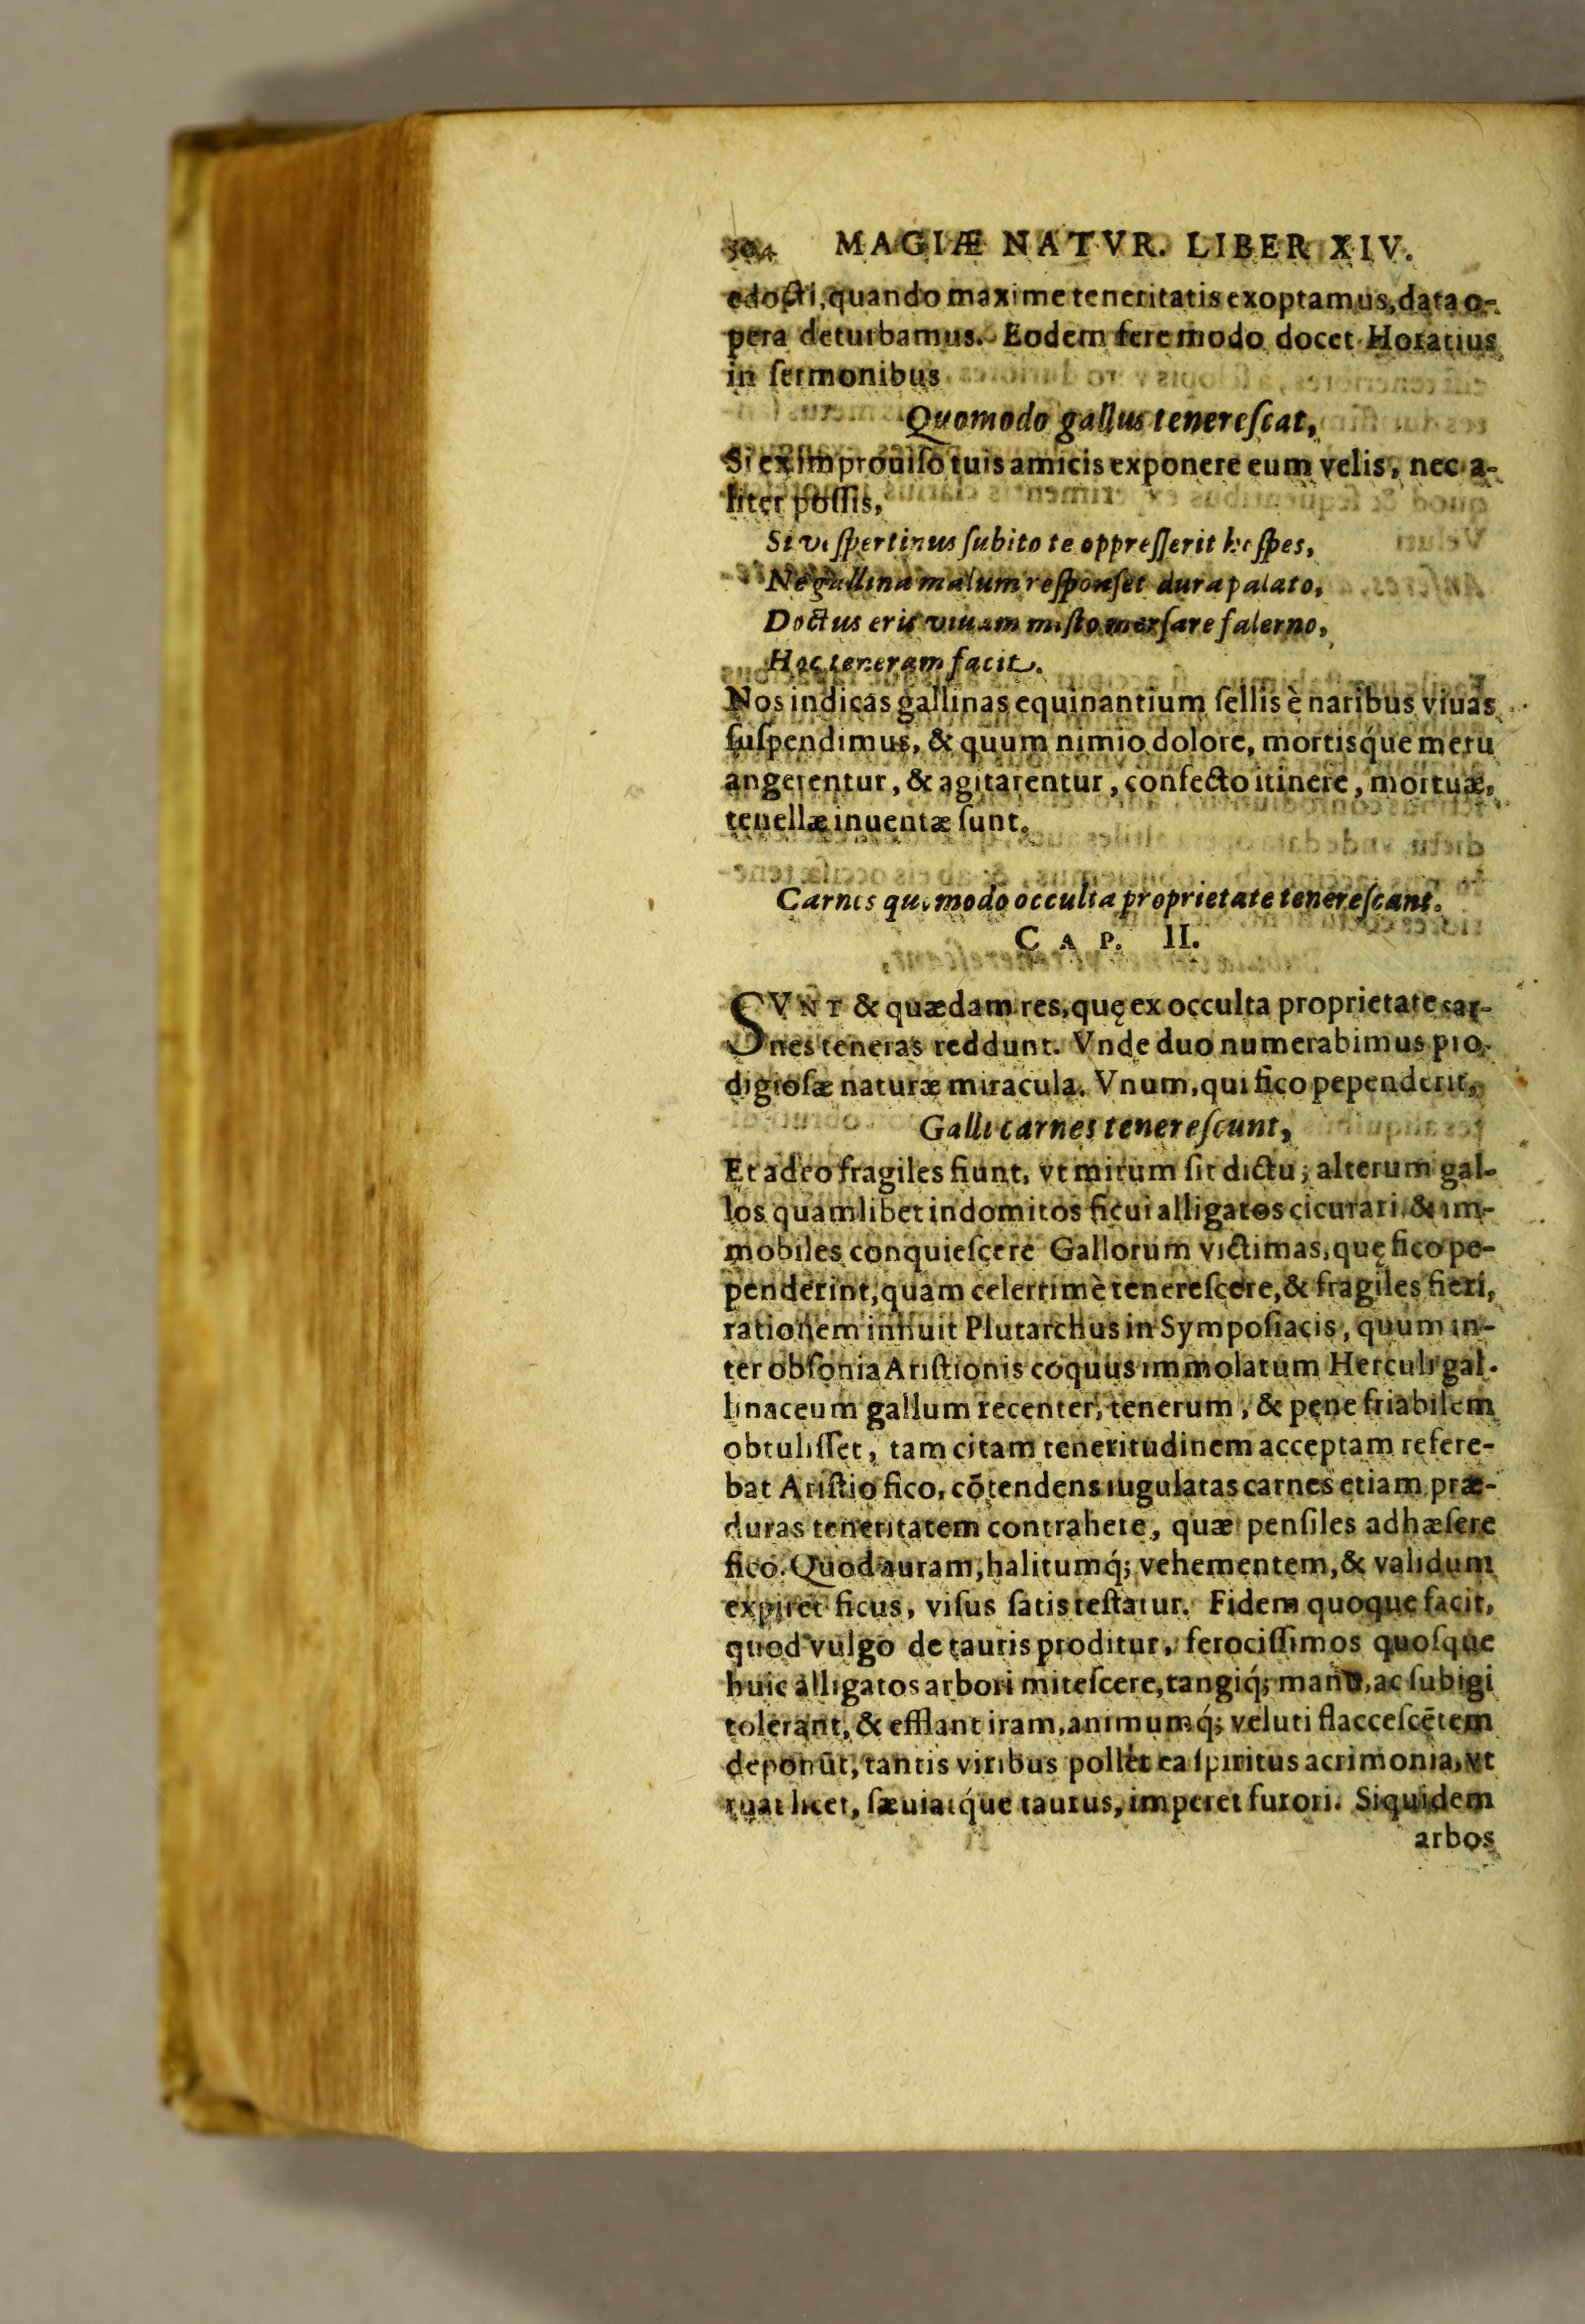 504 MAGIÆ NATVR. LIBER XIV.
edocti, quando maxime teneritatis exoptamus, data o-
pera deturbamus. Eodem fere modo docet Horatius
in ſermonibus
Quomodo gallus tenereſcat,
Si ex improuiſo tuis amicis exponere eum velis, nec a-
liter poſſis,
Si veſpertinus ſubito te oppreſſerit hoſpes,
Ne gallina malum reſponſet dura palato,
Doctus eris viuam miſto merſare falerno,
Hac teneram facit.
Nos indicas gallinas equinantium ſellis è naribus viuas
ſuſpendimus, & quum nimio dolore, mortisq́ue metu
angerentur, & agitarentur, confecto itinere, mortuæ,
tenellæ inuentæ ſunt.
Carnes quomodo occulta proprietate tenereſcant.
CAP. II.
SVNT & quædam res, quę ex occulta proprietate car-
nes teneras reddunt. Vnde duo numerabimus pro-
digioſæ naturæ miracula. Vnum, qui fico pependerit,
Galli carnes tenereſcunt,
Et adeo fragiles fiunt, vt mirum ſit dictu; alterum gal-
los quamlibet indomitos ficui alligatos cicurari, & im-
mobiles conquieſcere Gallorum victimas, quę fico pe-
penderint, quam celerrimè tenereſcere, & fragiles fieri,
rationem innuit Plutarchus in Sympoſiacis, quum in-
ter obſonia Ariſtionis coquus immolatum Herculi gal-
linaceum gallum recenter, tenerum, & pene friabilem
obtuliſſet, tam citam teneritudinem acceptam refere-
bat Ariſtio fico, cōtendens iugulatas carnes etiam præ-
duras teneritatem contrahere, quæ penſiles adhæſere
fico. Quod auram, halitumq́; vehementem, & validum
expiret ficus, viſus ſatis teſtatur. Fidem quoque facit,
quod vulgo de tauris proditur, ferociſſimos quoſque
huic alligatos arbori miteſcere, tangiq́; manu, ac ſubigi
tolerant, & efflant iram, animumq́; veluti flacceſcētem
deponūt, tantis viribus pollet ea ſpiritus acrimonia, vt
ruat licet, ſæuiatq́ue taurus, imperet furori. Siquidem
arbos